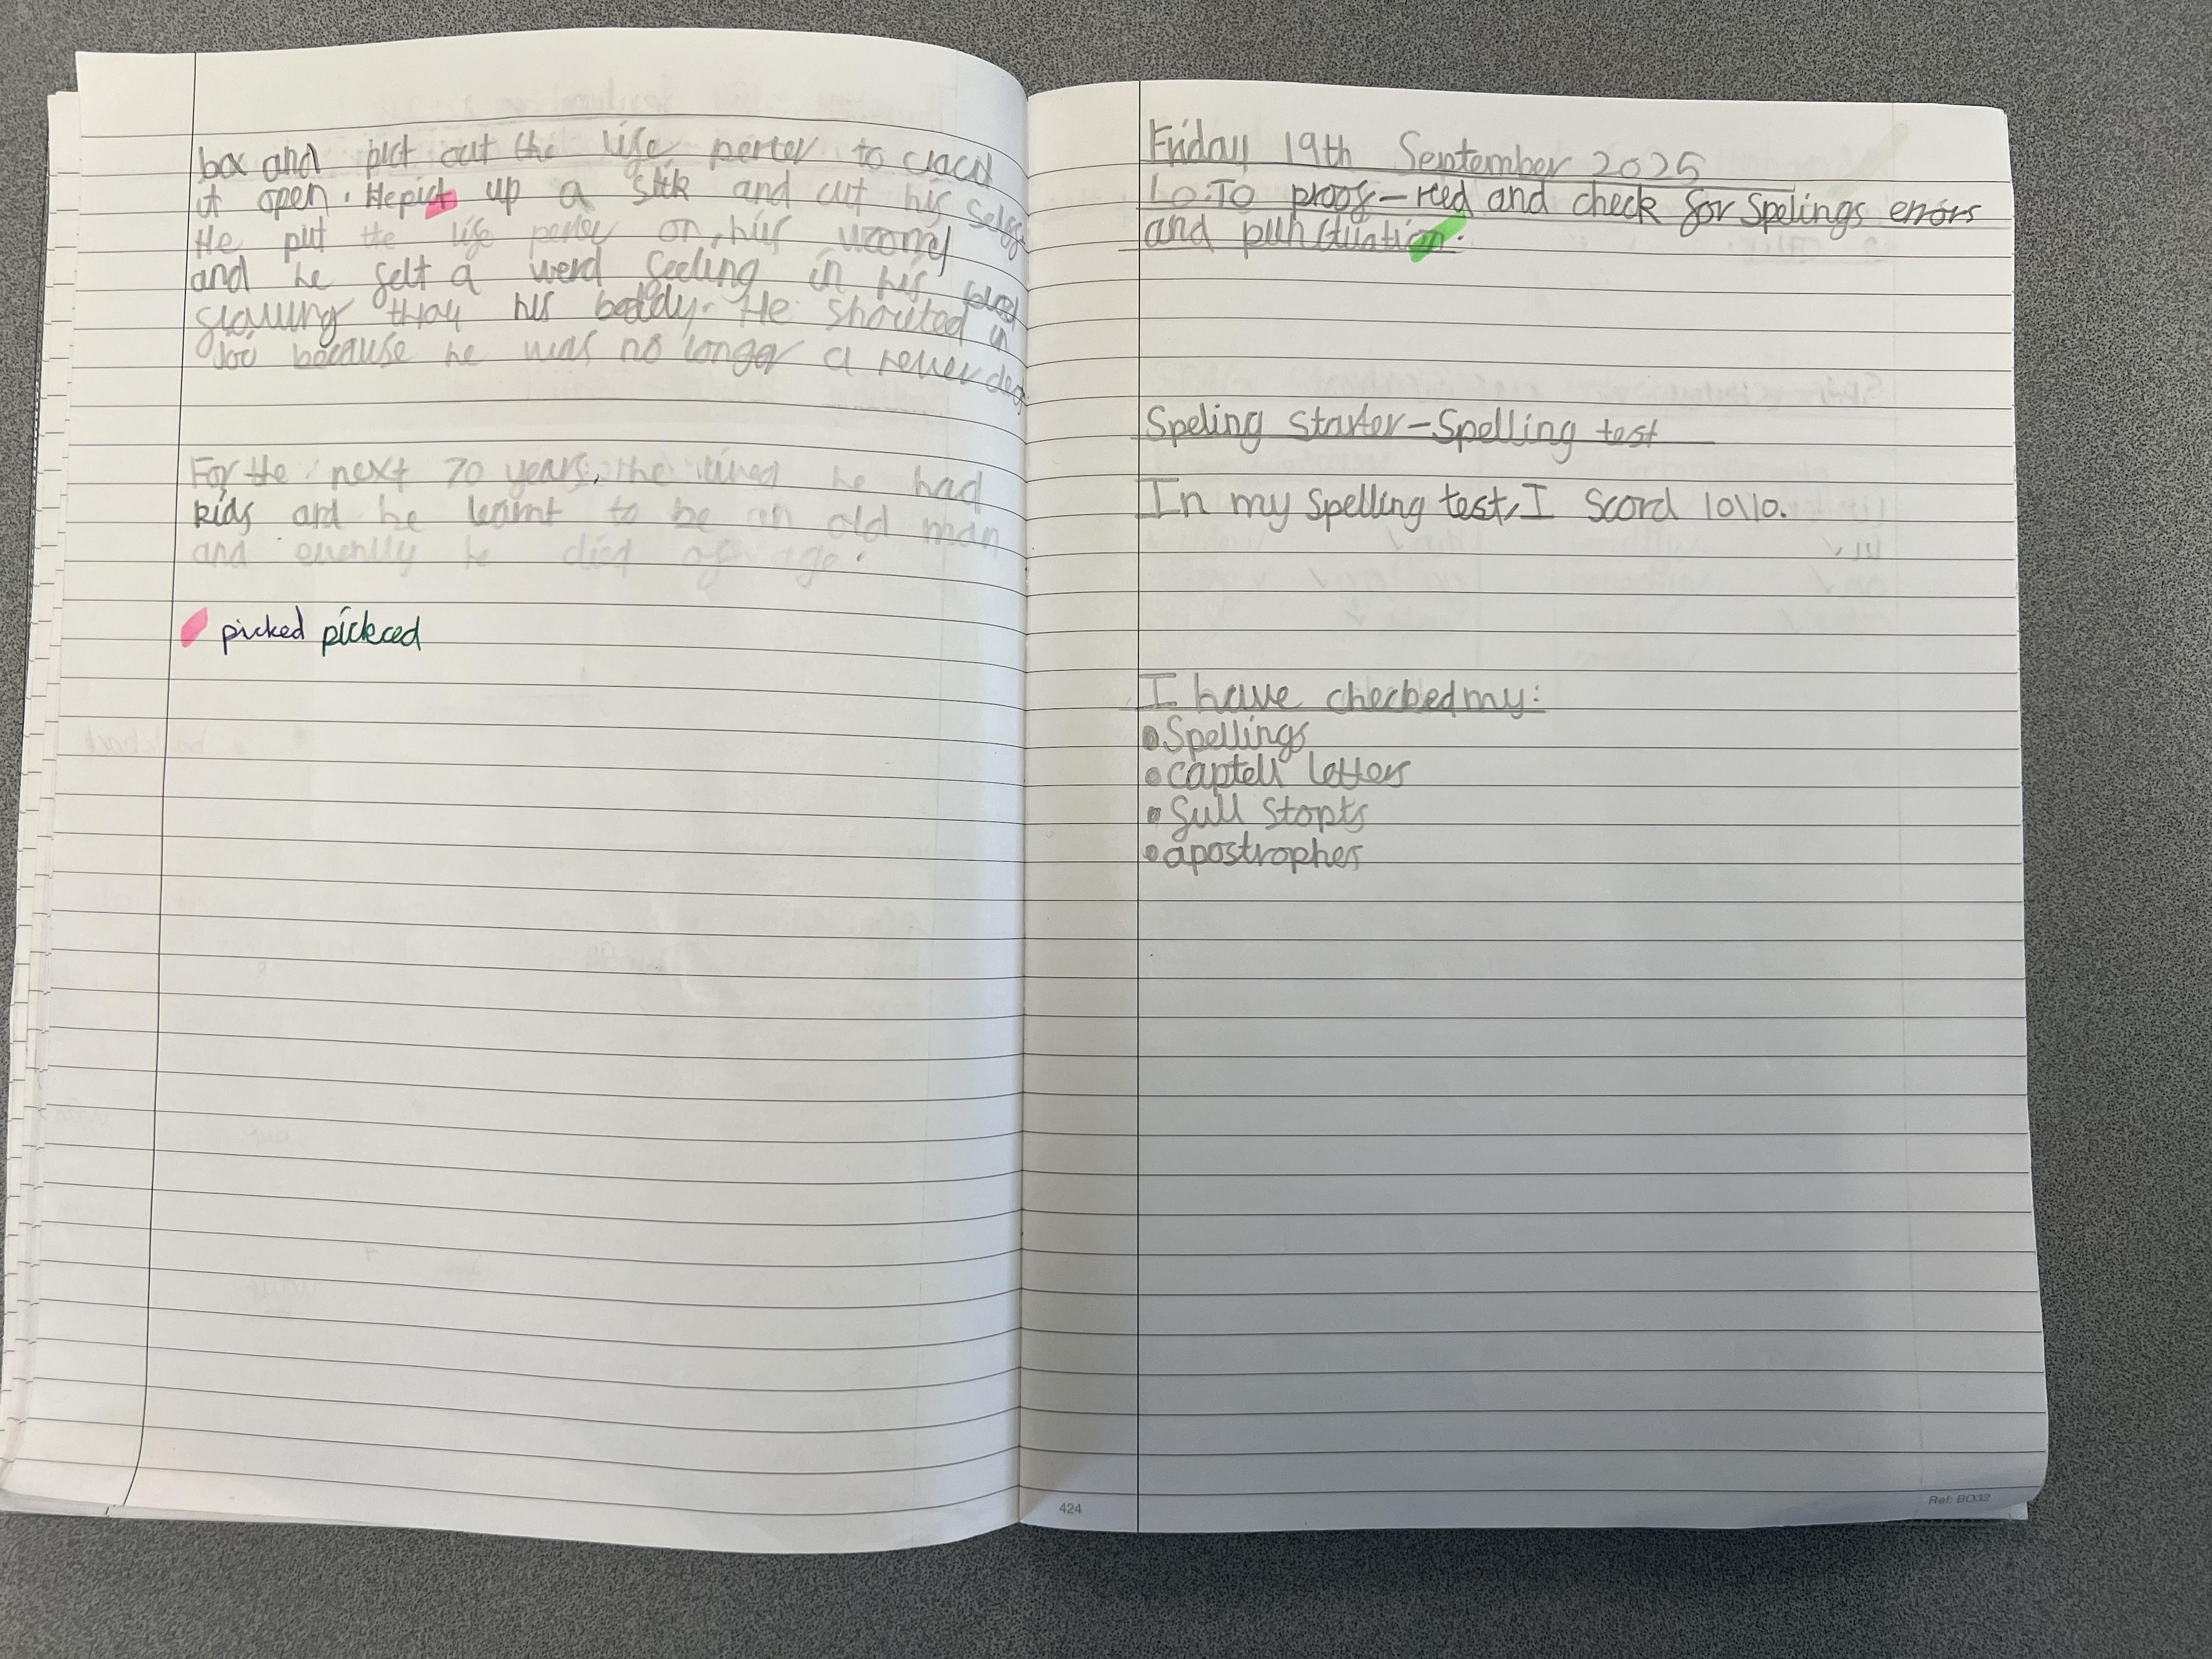 box and pict out the life perter to
it open. He pict up a stik and cut his self
He put the life perter on his
and he felt a werd feeling in his
his boddy. He shouted in
because he was no longer a
For the next 70 years, the lived he had
kids and he learnt to be an old man
and evently he died of age.
picked pickced
Friday 19th September 2025
LO:To proof-red and check for Spelings errors
and punctuation.
Speling Starter-Spelling test
In my Spelling test, I Scord 10\10.
I have checked my:
Spellings
captell letters
full Stopts
apostrophes
424
Ref: BO32